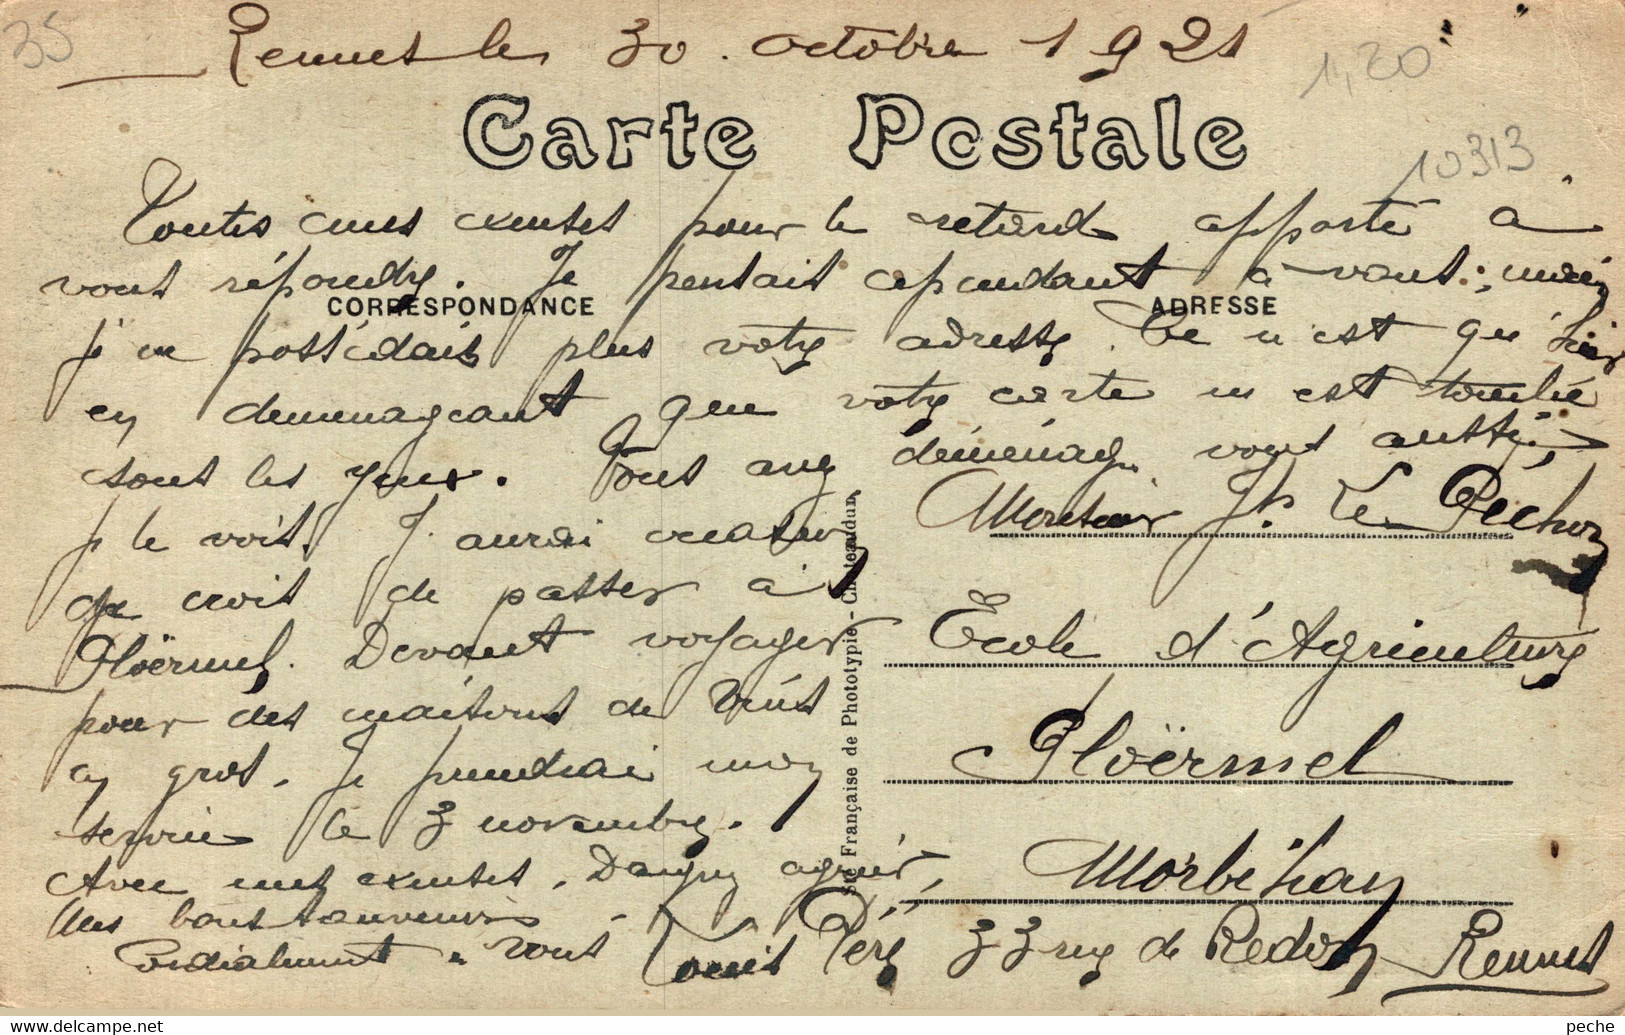 35
Rennes le 30 octobre 1921
1,20
Carte Postale
10313
Toutes mes excuses pour le retard apporté à
vous répondre. Je pensais cependant à vous ; mais
CORRESPONDANCE
ADRESSE
je ne possédais plus votre adresse. Ce n'est qu'hier
en demenageant que votre carte m'est tombée
sous les yeux. Vous avez déménagé vous aussi,
je le vois. J'aurai occasion
je crois de passer à
Ploërmel. Devant voyager
pour des maisons de Vins
en gros. Je prendrai mon
service le 3 novembre.
Avec mes excuses. Daignez agréer,
Mes bons souvenirs
Cordialement à vous Louis Père 33 rue de Redon Rennes
Monsieur Jh. Le Péchon
Ecole d'Agriculture
Ploërmel
Morbihan
Sté Française de Phototypie - Chateaudun
peche